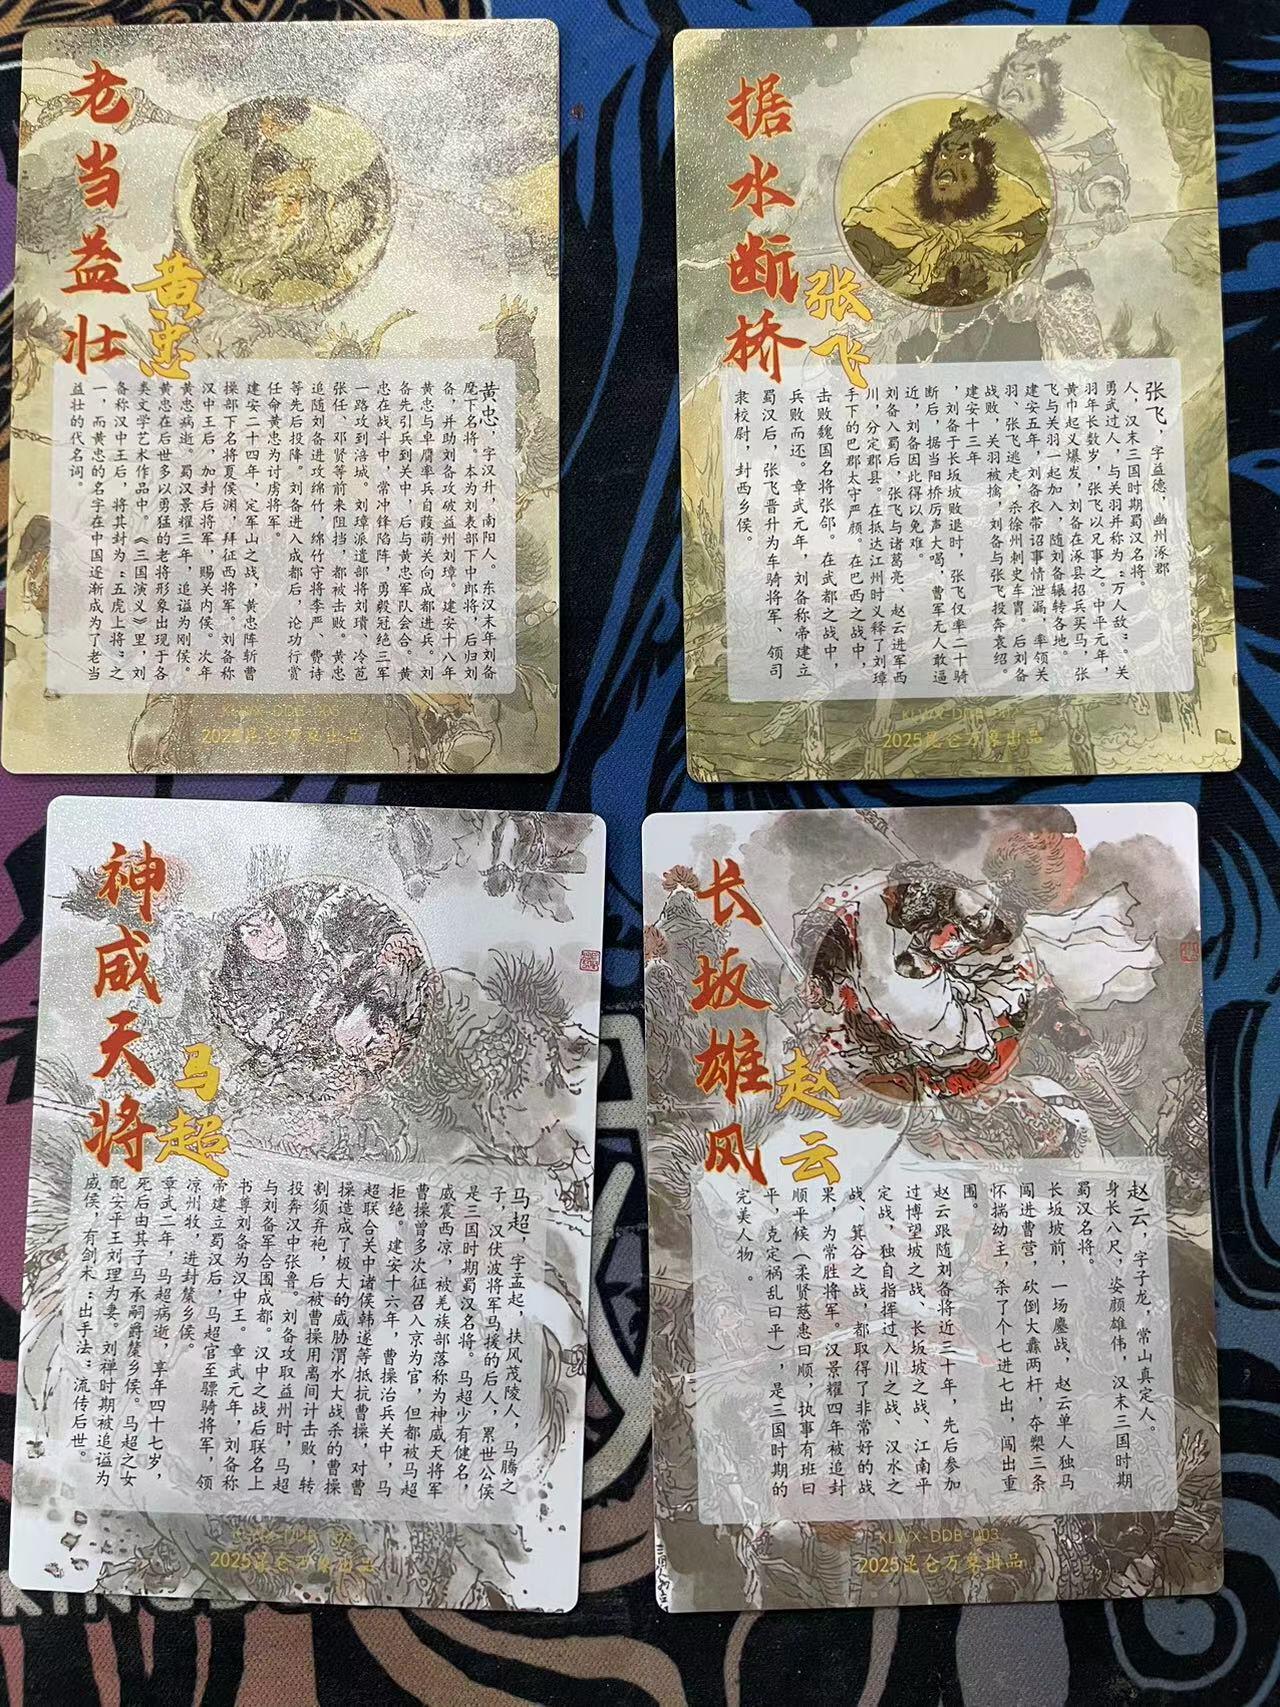 老当益壮
黄忠
黄忠，字汉升，南阳人。东汉末年刘备
麾下名将。本为刘表部下中郎将，后归刘
备，并助刘备攻破益州刘璋。建安十八年
黄忠与卓膺率兵自葭萌关向成都进兵。刘
备先引兵到关中，后与黄忠军队会合。黄
忠在战斗中，常冲锋陷阵，勇毅冠绝三军
一路攻到涪城。刘璋派遣部将刘璝、冷苞
张任、邓贤等前来阻挡，都被击败。黄忠
追随刘备进攻绵竹，绵竹守将李严、费诗
等先后投降。刘备进入成都后，论功行赏
任命黄忠为讨虏将军。
建安二十四年，定军山之战，黄忠阵斩曹
操部下名将夏侯渊，拜征西将军。刘备称
汉中王后，加封后将军，赐关内侯。次年
黄忠病逝。蜀汉景耀三年，追谥为刚侯。
黄忠在后世多以勇猛的老将形象出现于各
类文学艺术作品中。《三国演义》里，刘
备称汉中王后，将其封为：五虎上将：之
一，而黄忠的名字在中国逐渐成为了老当
益壮的代名词。
2025昆仑万象出品
据水断桥
张飞
张飞，字益德，幽州涿郡
人，汉末三国时期蜀汉名将。
勇武过人，与关羽并称为：万人敌：。关
羽年长数岁，张飞以兄事之。中平元年，
黄巾起义爆发，刘备在涿县招兵买马，张
飞与关羽一起加入，随刘备辗转各地。
建安五年，刘备衣带诏事情泄漏，率领关
羽、张飞逃走，杀徐州刺史车胄。后刘备
战败，关羽被擒，刘备与张飞投奔袁绍。
建安十三年
，刘备于长坂坡败退时，张飞仅率二十骑
断后，据当阳桥厉声大喝，曹军无人敢逼
近，刘备因此得以免难。
刘备入蜀后，张飞与诸葛亮、赵云进军西
川，分定郡县。在抵达江州时义释了刘璋
手下的巴郡太守严颜。在巴西之战中，
击败魏国名将张郃。在武都之战中，
兵败而还。章武元年，刘备称帝建立
蜀汉后，张飞晋升为车骑将军、领司
隶校尉，封西乡侯。
2025昆仑万象出品
神威天将
马超
马超，字孟起，扶风茂陵人，马腾之
子，汉伏波将军马援的后人，累世公侯
是三国时期蜀汉名将。马超少有健名，
威震西凉，被羌族部落称为神威天将军
曹操曾多次征召入京为官，但都被马超
拒绝。建安十六年，曹操治兵关中，马
超联合关中诸侯韩遂等抵抗曹操，对曹
操造成了极大的威胁渭水大战杀的曹操
割须弃袍，后被曹操用离间计击败，转
投奔汉中张鲁。刘备攻取益州时，马超
与刘备军合围成都。汉中之战后联名上
书尊刘备为汉中王。章武元年，刘备称
帝建立蜀汉后，马超官至骠骑将军，领
凉州牧，进封斄乡侯。
章武二年，马超病逝，享年四十七岁，
死后由其子马承嗣爵斄乡侯。马超之女
配安平王刘理为妻。刘禅时期被追谥为
威侯，有剑术：出手法：流传后世。
2025昆仑万象出品
长坂雄风
赵云
赵云，字子龙，常山真定人。
身长八尺，姿颜雄伟，汉末三国时期
蜀汉名将。
长坂坡前，一场鏖战，赵云单人独马
闯进曹营，砍倒大纛两杆，夺槊三条
怀揣幼主，杀了个七进七出，闯出重
围。
赵云跟随刘备将近三十年，先后参加
过博望坡之战、长坂坡之战、江南平
定战，独自指挥过入川之战、汉水之
战、箕谷之战，都取得了非常好的战
果，为常胜将军。汉景耀四年被追封
顺平候（柔贤慈惠曰顺，执事有班曰
平，克定祸乱曰平），是三国时期的
完美人物。
KLWX-DDB-003
2025昆仑万象出品